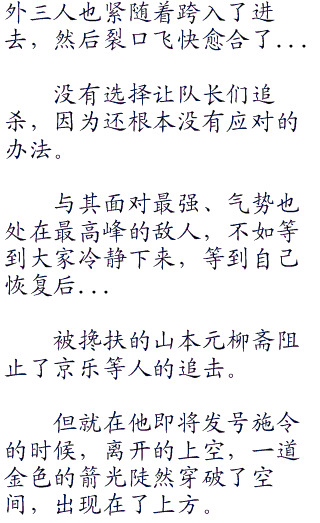 外三人也紧随着跨入了进
去，然后裂口飞快愈合了...
没有选择让队长们追
杀，因为还根本没有应对的
办法。
与其面对最强、气势也
处在最高峰的敌人，不如等
到大家冷静下来，等到自己
恢复后...
被搀扶的山本元柳斋阻
止了京乐等人的追击。
但就在他即将发号施令
的时候，离开的上空，一道
金色的箭光陡然穿破了空
间，出现在了上方。